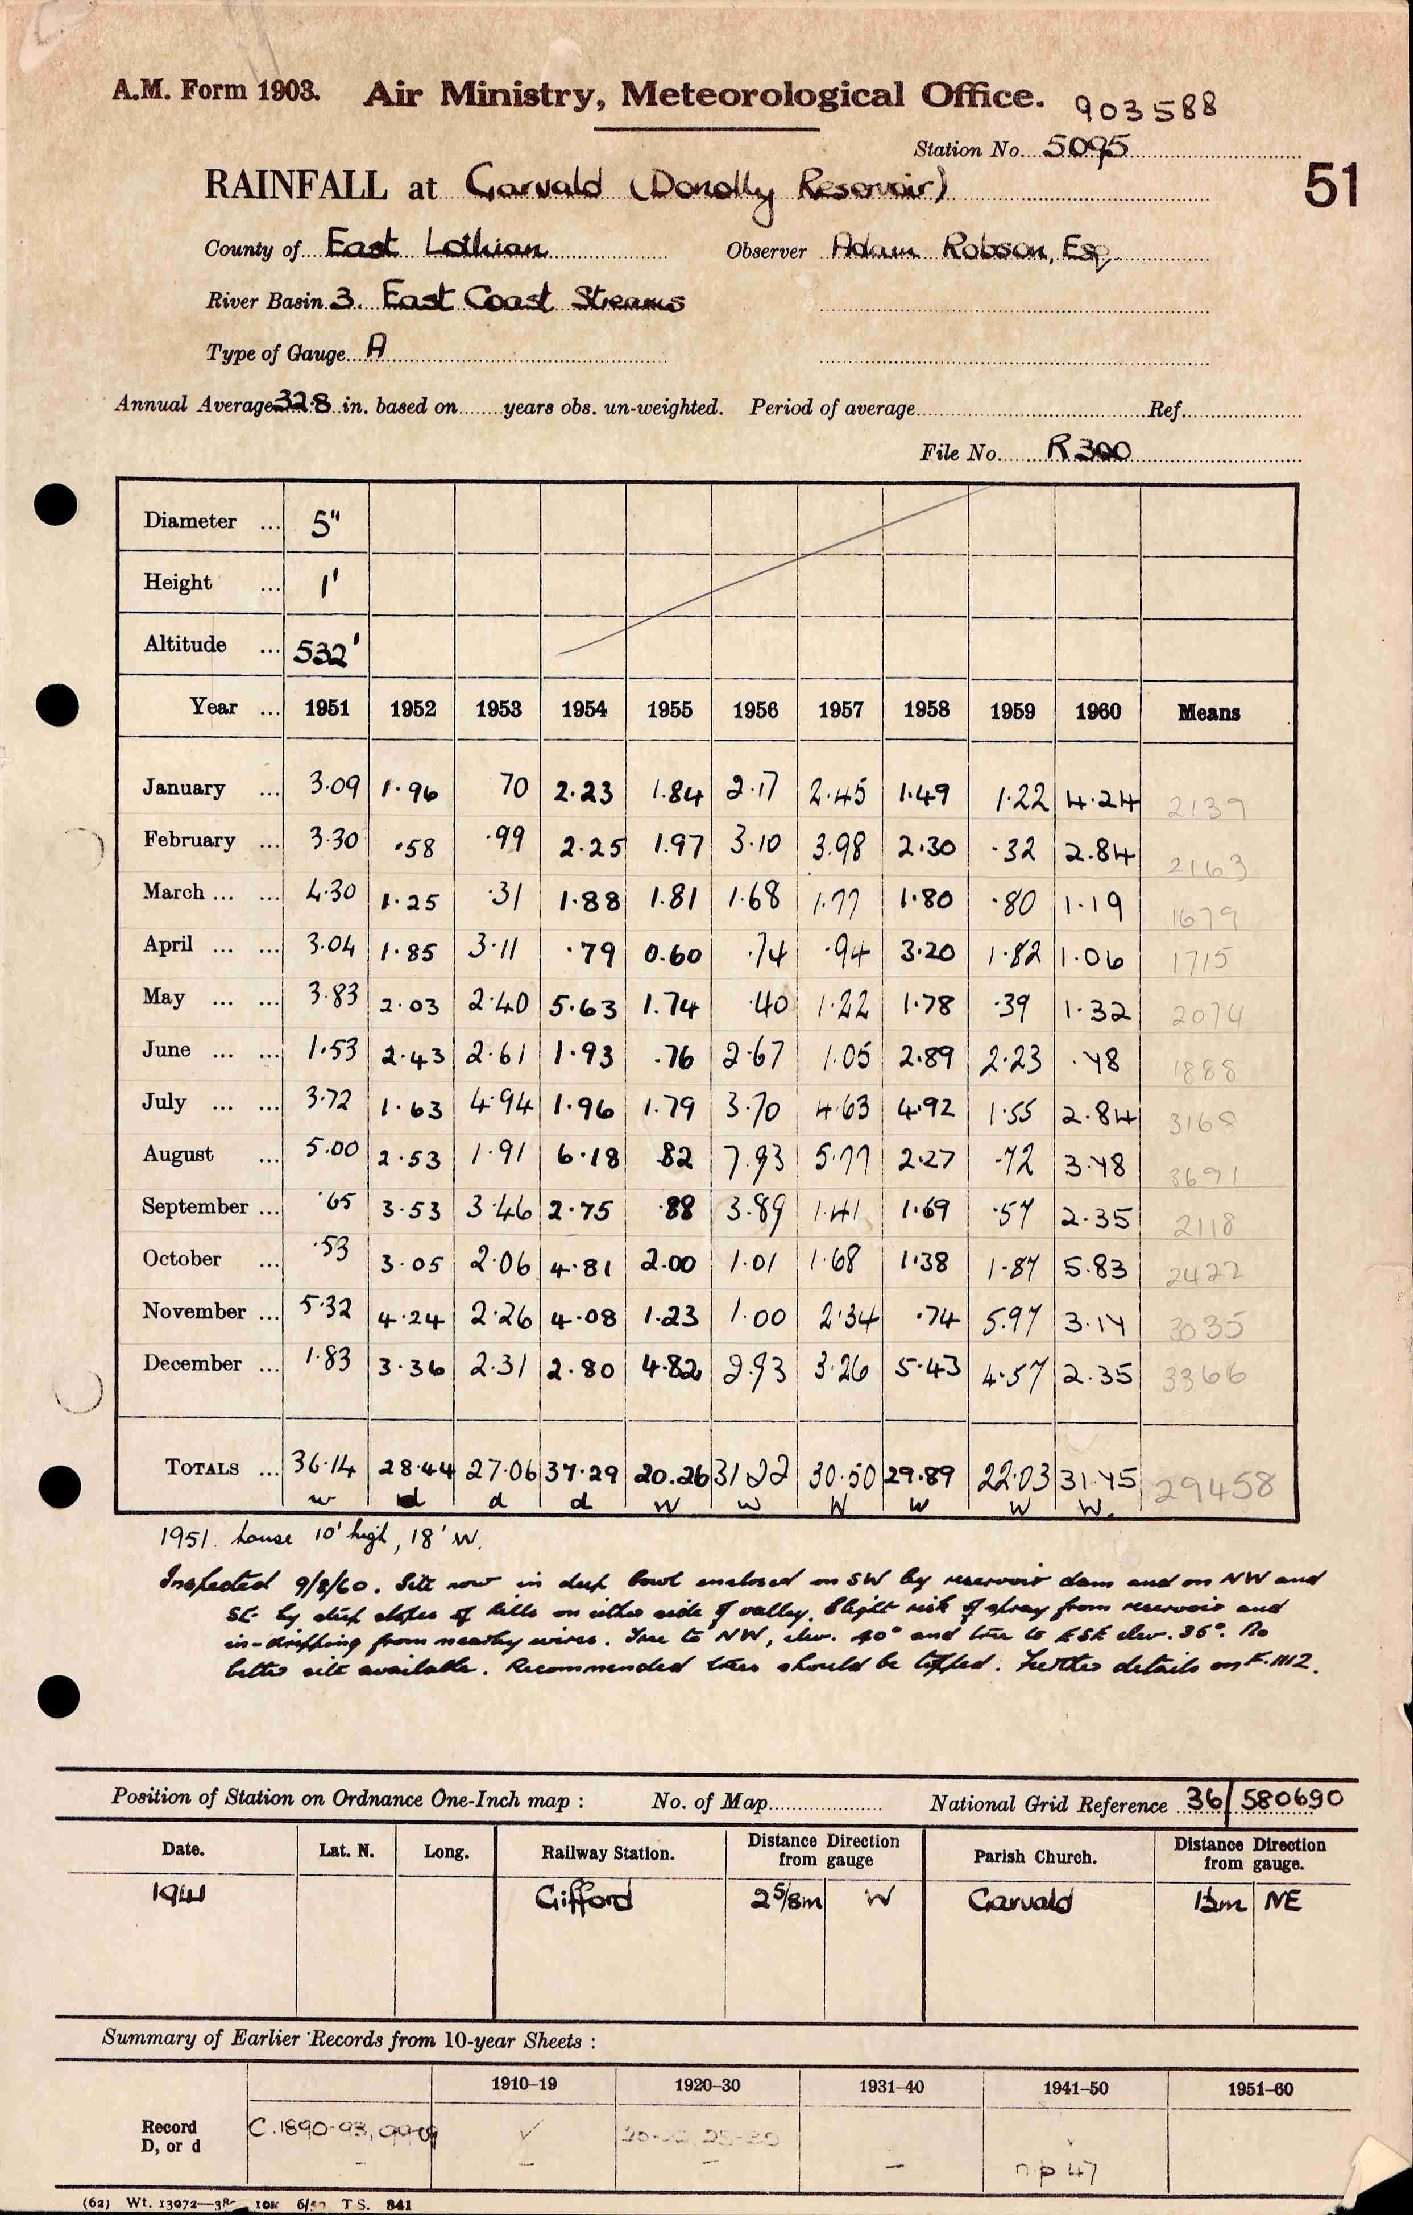 A.M. Form 1903. Air Ministry, Meteorological Office. 903588
Station No. 5095
RAINFALL at Garvald (Donolly Reservoir) 51
County of East Lothian Observer Adam Robson, Esq
River Basin 3. East Coast Streams
Type of Gauge A
Annual Average 32.8 in. based on years obs. un-weighted. Period of average Ref.
File No. R300
Diameter ... 5"
Height ... 1'
Altitude ... 532'
Year ... 1951 1952 1953 1954 1955 1956 1957 1958 1959 1960 Means
January ... 3.09 1.96 70 2.23 1.84 2.17 2.45 1.49 1.22 4.24 2139
February ... 3.30 .58 .99 2.25 1.97 3.10 3.98 2.30 .32 2.84 2163
March ... ... 4.30 1.25 .31 1.88 1.81 1.68 1.77 1.80 .80 1.19 1679
April ... ... 3.04 1.85 3.11 .79 0.60 .74 .94 3.20 1.82 1.06 1715
May ... ... 3.83 2.03 2.40 5.63 1.74 .40 1.22 1.78 .39 1.32 2074
June ... ... 1.53 2.43 2.61 1.93 .76 2.67 1.05 2.89 2.23 .48 1888
July ... ... 3.72 1.63 4.94 1.96 1.79 3.70 4.63 4.92 1.55 2.84 3168
August ... 5.00 2.53 1.91 6.18 .82 7.93 5.77 2.27 .72 3.78 3691
September ... .65 3.53 3.46 2.75 .88 3.89 1.41 1.69 .57 2.35 2118
October ... .53 3.05 2.06 4.81 2.00 1.01 1.68 1.38 1.87 5.83 2422
November ... 5.32 4.24 2.26 4.08 1.23 1.00 2.34 .74 5.97 3.17 3035
December ... 1.83 3.36 2.31 2.80 4.82 2.93 3.26 5.43 4.57 2.35 3366
TOTALS ... 36.14 28.44 27.06 37.29 20.26 31.22 30.50 29.89 22.03 31.45 29458
w d d d W w W w W W.
1951. house 10' high, 18' W.
Inspected 9/8/60. Site now in deep bowl enclosed on SW by reservoir dam and on NW and
SE by steep slopes of hills on either side of valley. Slight risk of spray from reservoir and
in-dripping from nearby wires. Tree to NW, elev. 40° and tree to ESE elev. 36°. No
better site available. Recommended trees should be topped. Further details on F.1112.
Position of Station on Ordnance One-Inch map : No. of Map National Grid Reference 36/580690
Date. Lat. N. Long. Railway Station. Distance Direction from gauge Parish Church. Distance Direction from gauge.
1941 Gifford 2 5/8m W Garvald NE
Summary of Earlier Records from 10-year Sheets :
1910-19 1920-30 1931-40 1941-50 1951-60
Record C.1890-93, ✓
D, or d - - - - n p 47
(62) Wt. 13072 10M T S. 841